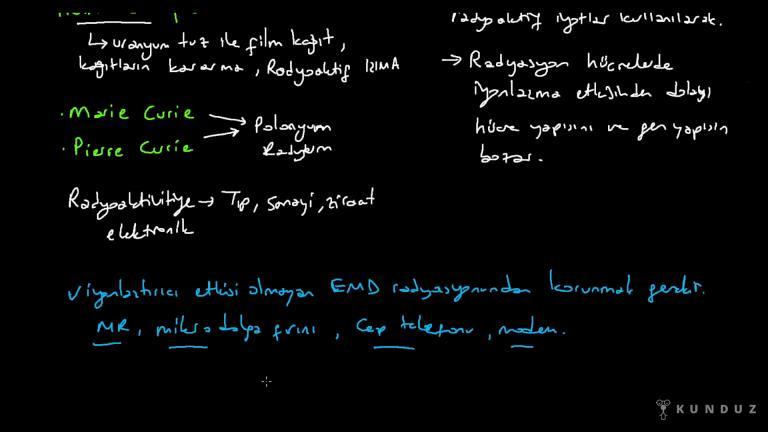 ↳ uranyum tuz ile film kağıt,
kağıtların kararma, Radyoaktif IŞIMA
· Marie Curie
· Pierre Curie
Polonyum
Radyum
Radyoaktivitiye → Tıp, Sanayi, ziraat
elektronik
radyoaktif iyotlar kullanılarak.
→ Radyasyon hücrelerde
iyonlaşma etkisinden dolayı
hücre yapısını ve gen yapısın
bozar.
✓ iyonlaştırıcı etkisi olmayan EMD radyasyonundan korunmak gerekir.
MR, mikro dalga fırını, Cep telefonu, modem.
KUNDUZ